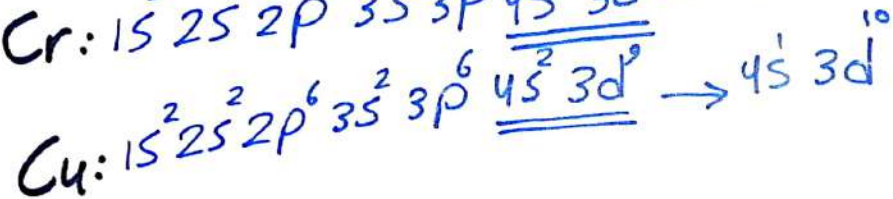 Cr: 1S 2S 2P 3S 3P 4S 3d
Cu: 1S² 2S² 2P⁶ 3S² 3P⁶ 4S² 3d⁹ → 4S¹ 3d¹⁰